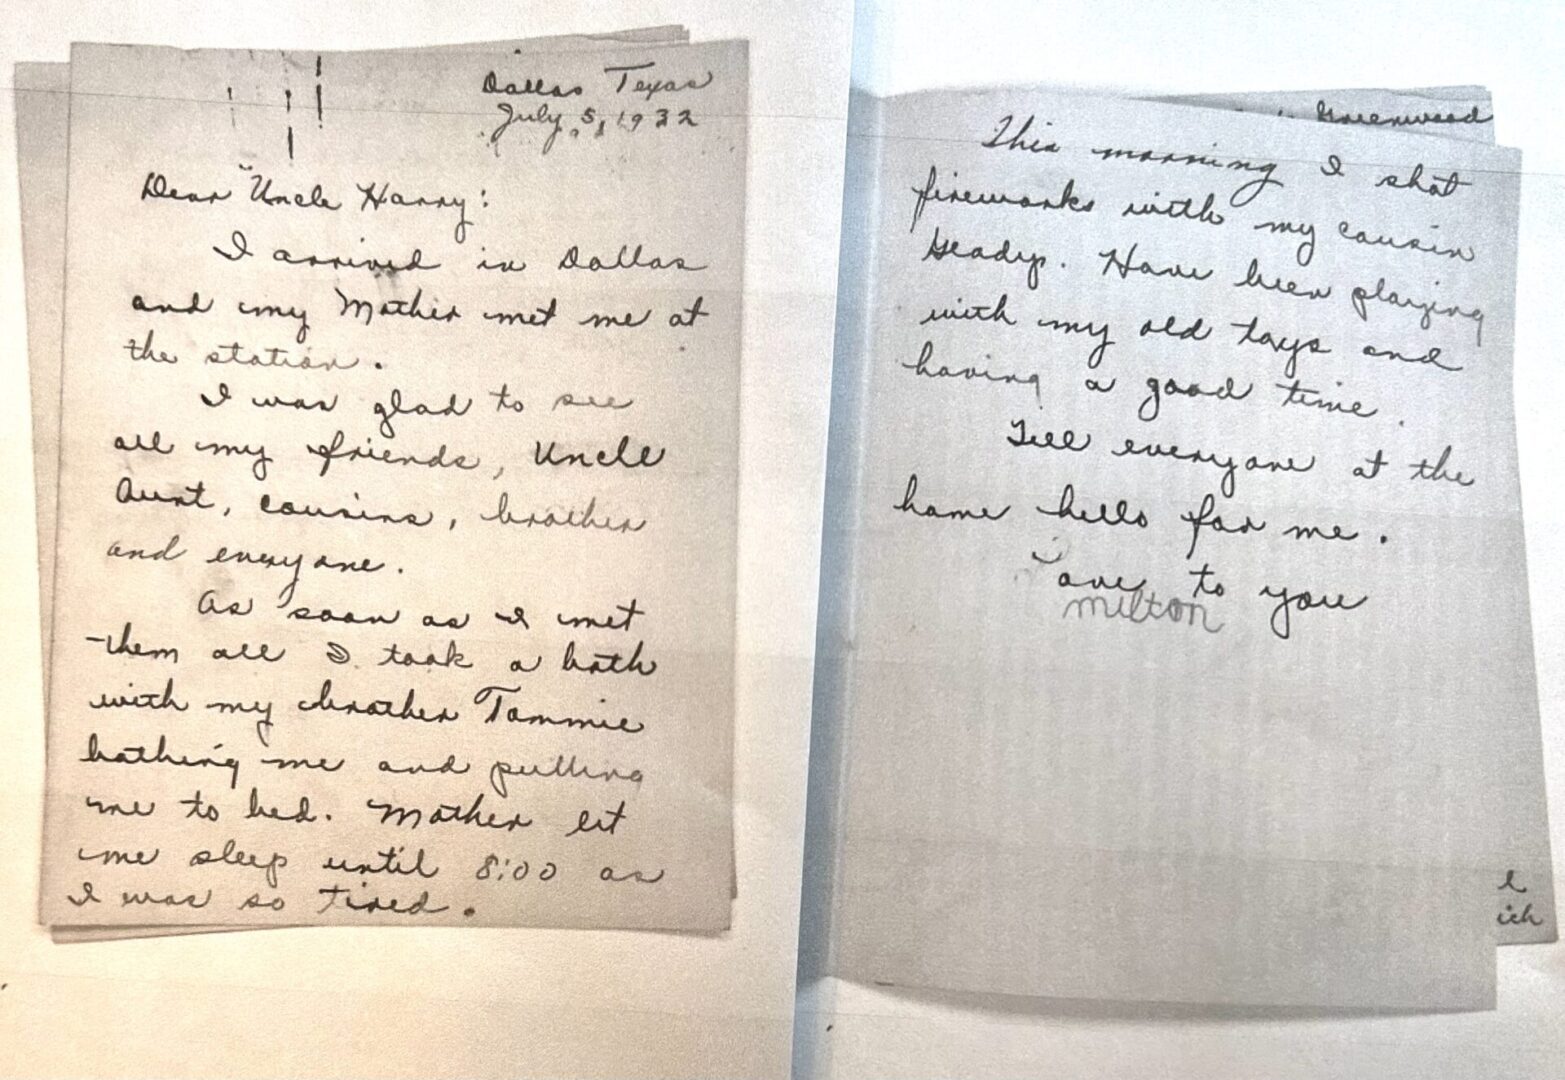 Dallas Texas
July 5, 1932
Dear Uncle Harry:
I arrived in Dallas
and my Mother met me at
the station.
I was glad to see
all my friends, Uncle
Aunt, cousins, brother
and everyone.
As soon as I met
them all I took a bath
with my brother Tommie
bathing me and putting
me to bed. Mother let
me sleep until 8:00 as
I was so tired.
Greenwood
This morning I shot
fireworks with my cousin
. Have been playing
with my old toys and
having a good time.
Tell everyone at the
home hello for me.
Love to you
milton